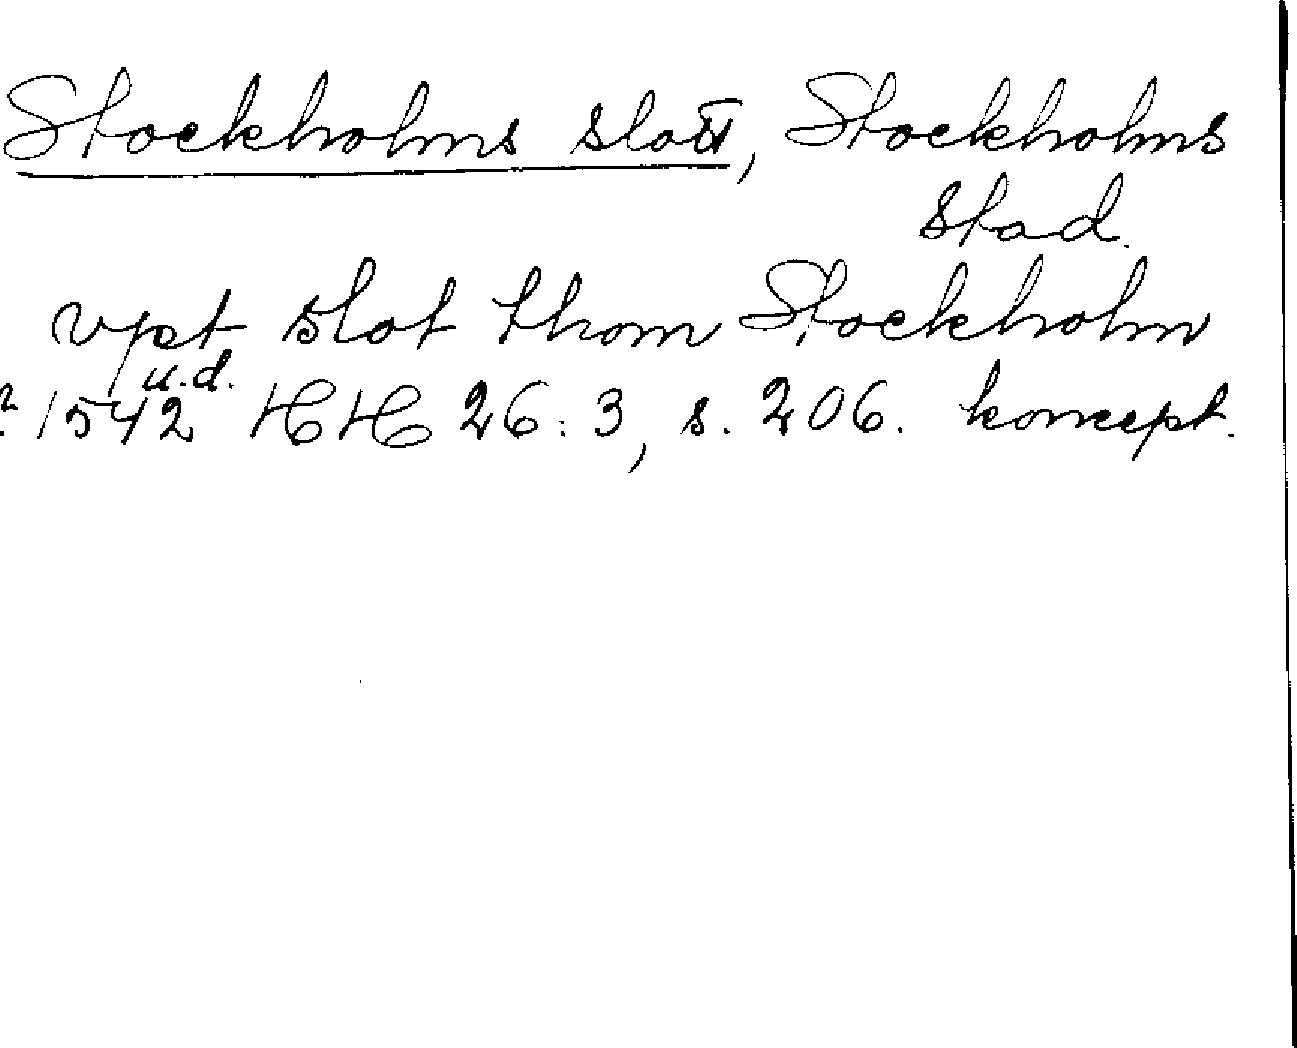 Stockholms slott, Stockholms
stad.
vpst slot thom Stockholm
u.d.
? 1542 HH 26:3, s. 206. koncept.